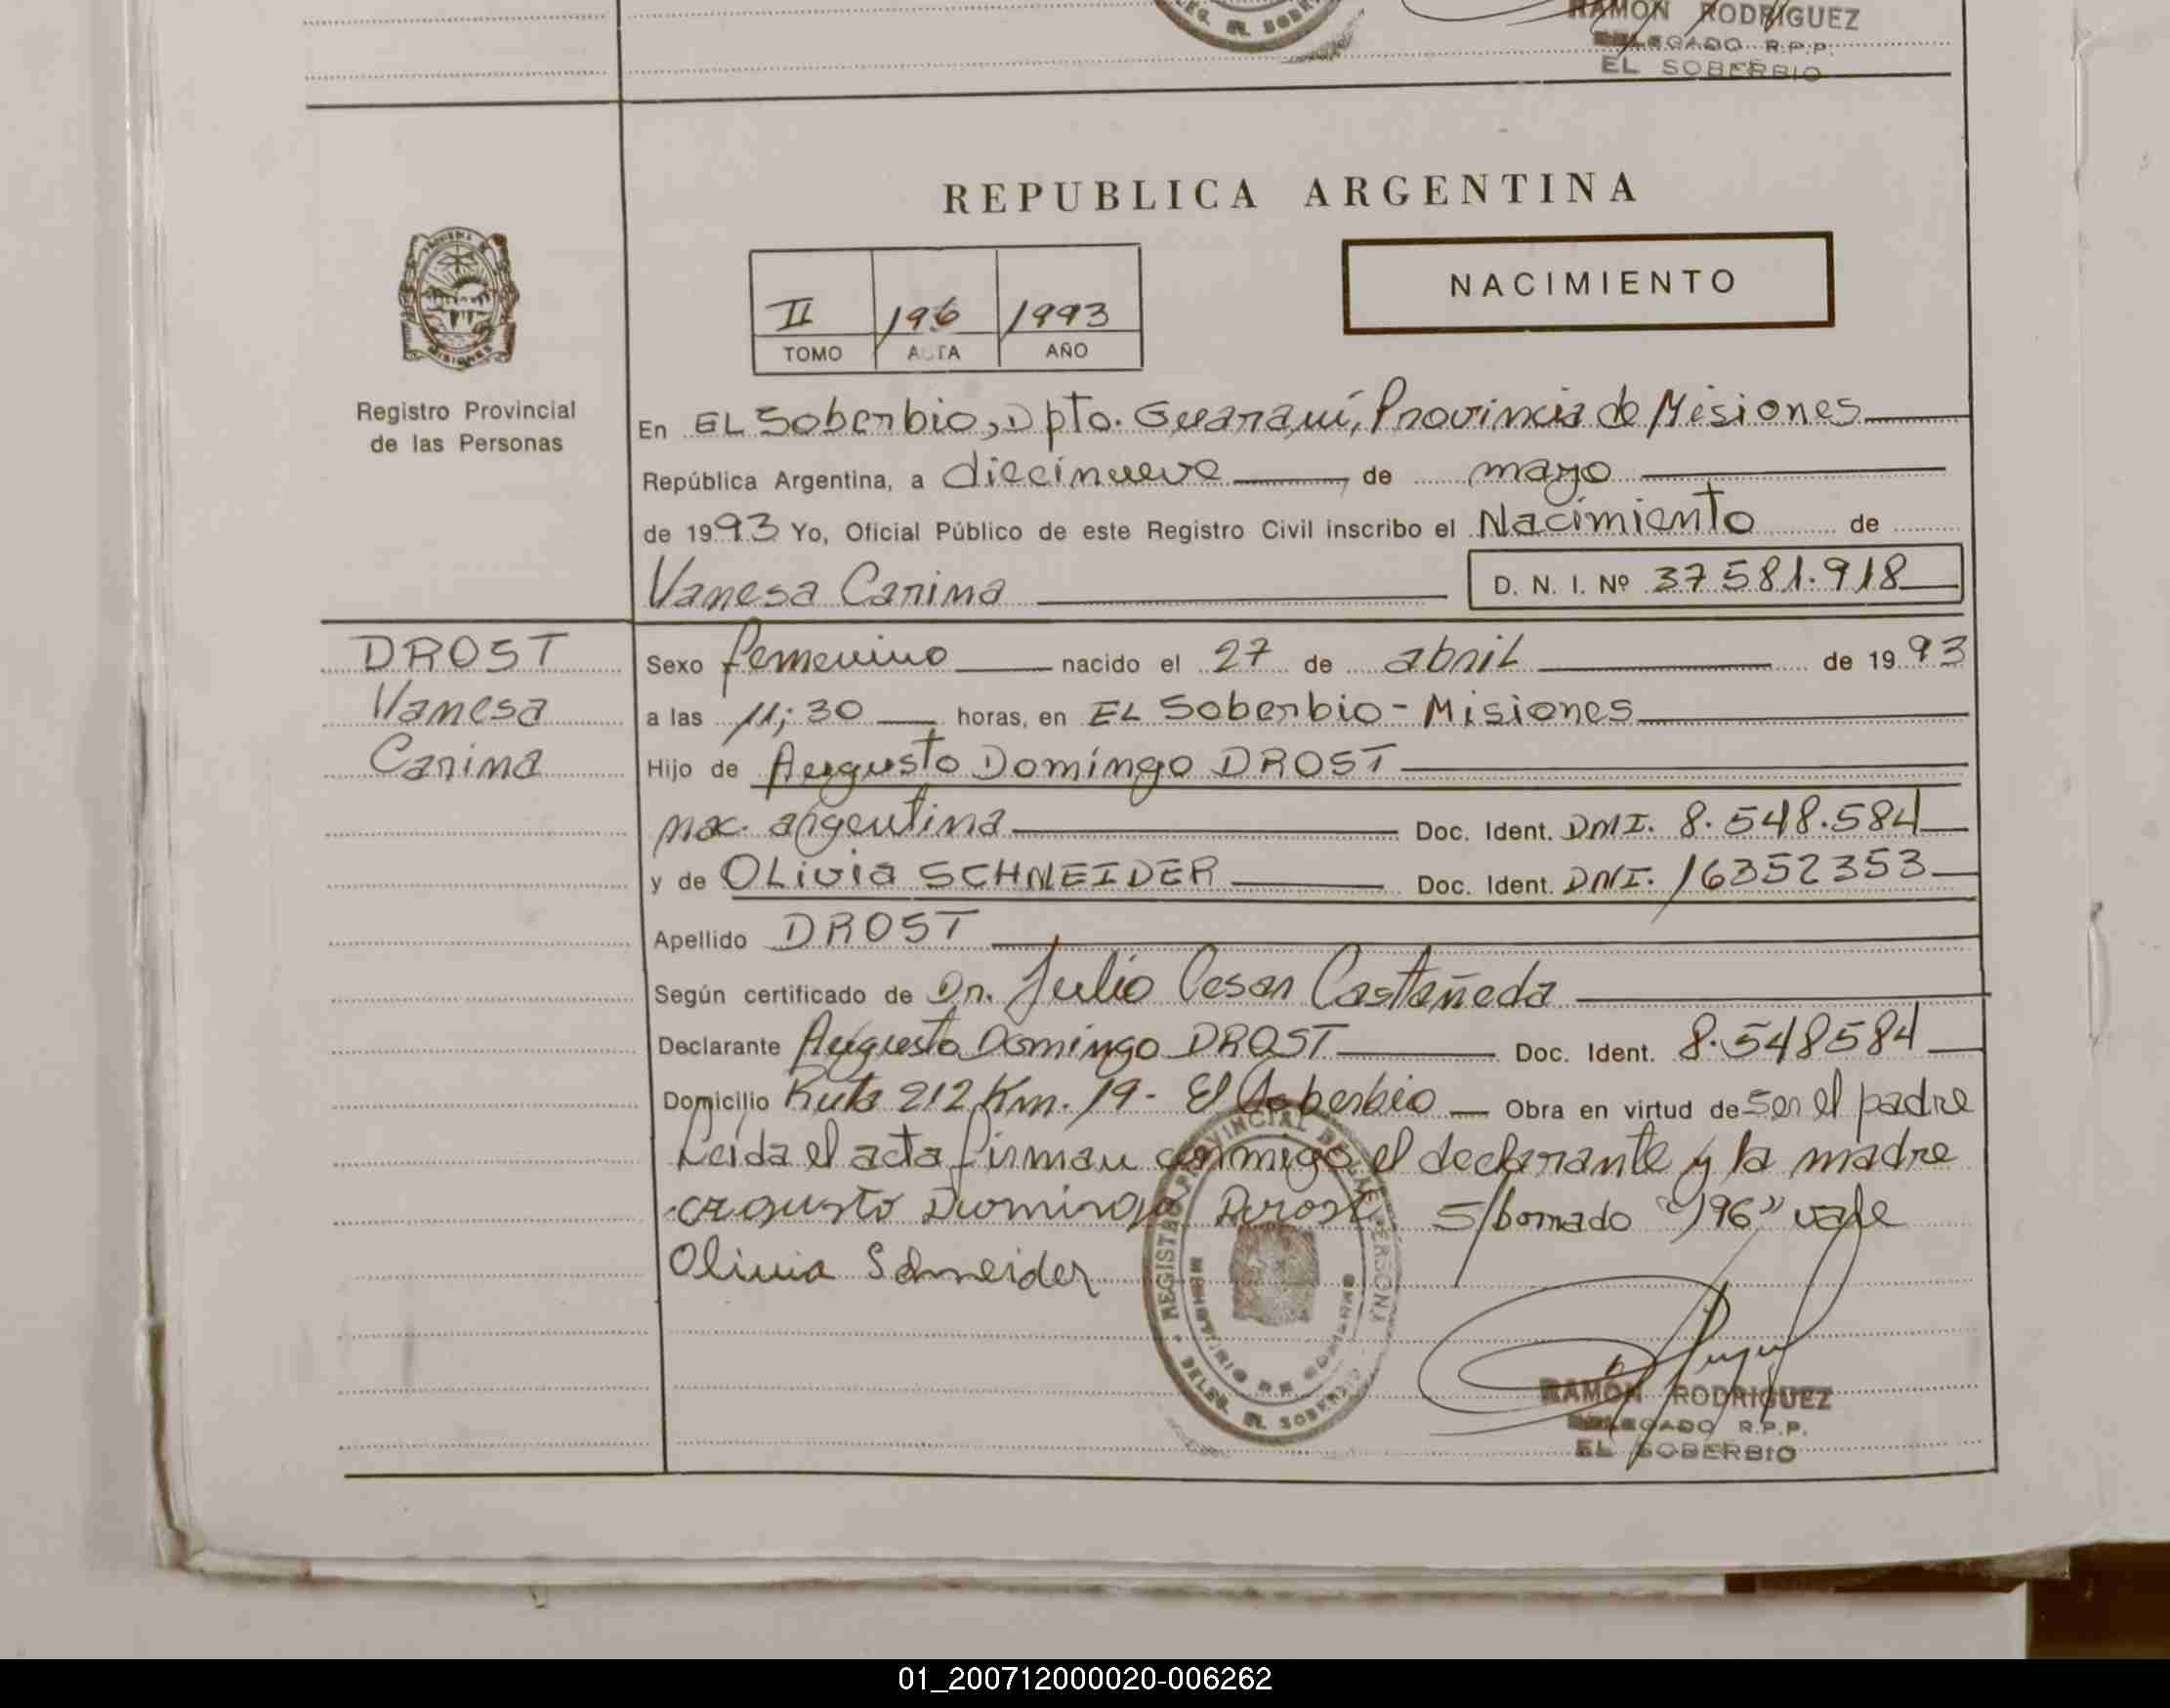 RAMON RODRIGUEZ
DELEGADO R.P.P.
EL SOBERBIO
REPUBLICA ARGENTINA
NACIMIENTO
II 196 1993
TOMO ACTA AÑO
Registro Provincial
de las Personas
En EL Soberbio, Dpto. Guaraní, Provincia de Misiones
República Argentina, a diecinueve de mayo
de 1993 Yo, Oficial Público de este Registro Civil inscribo el Nacimiento de
Vanesa Carina D. N. I. Nº 37581.918
DROST
Vanesa
Carina
Sexo femenino nacido el 27 de abril de 1993
a las 11;30 horas, en EL Soberbio - Misiones
Hijo de Augusto Domingo DROST
nac. argentina Doc. Ident. DNI. 8.548.584
y de OLivia SCHNEIDER Doc. Ident. DNI. 16352353
Apellido DROST
Según certificado de Dr. Julio Cesar Castañeda
Declarante Augusto Domingo DROST Doc. Ident. 8.548584
Domicilio Ruta 212 Km. 19 - El Soberbio Obra en virtud de ser el padre
Leida el acta firman conmigo el declarante y la madre
Augusto Domingo Drost S/borrado "196" vale
Olivia Schneider
REGISTRO PROVINCIAL DE LAS PERSONAS
MINISTERIO DE GOBIERNO
DELEG. EL SOBERBIO
RAMON RODRIGUEZ
DELEGADO R.P.P.
EL SOBERBIO
01_200712000020-006262